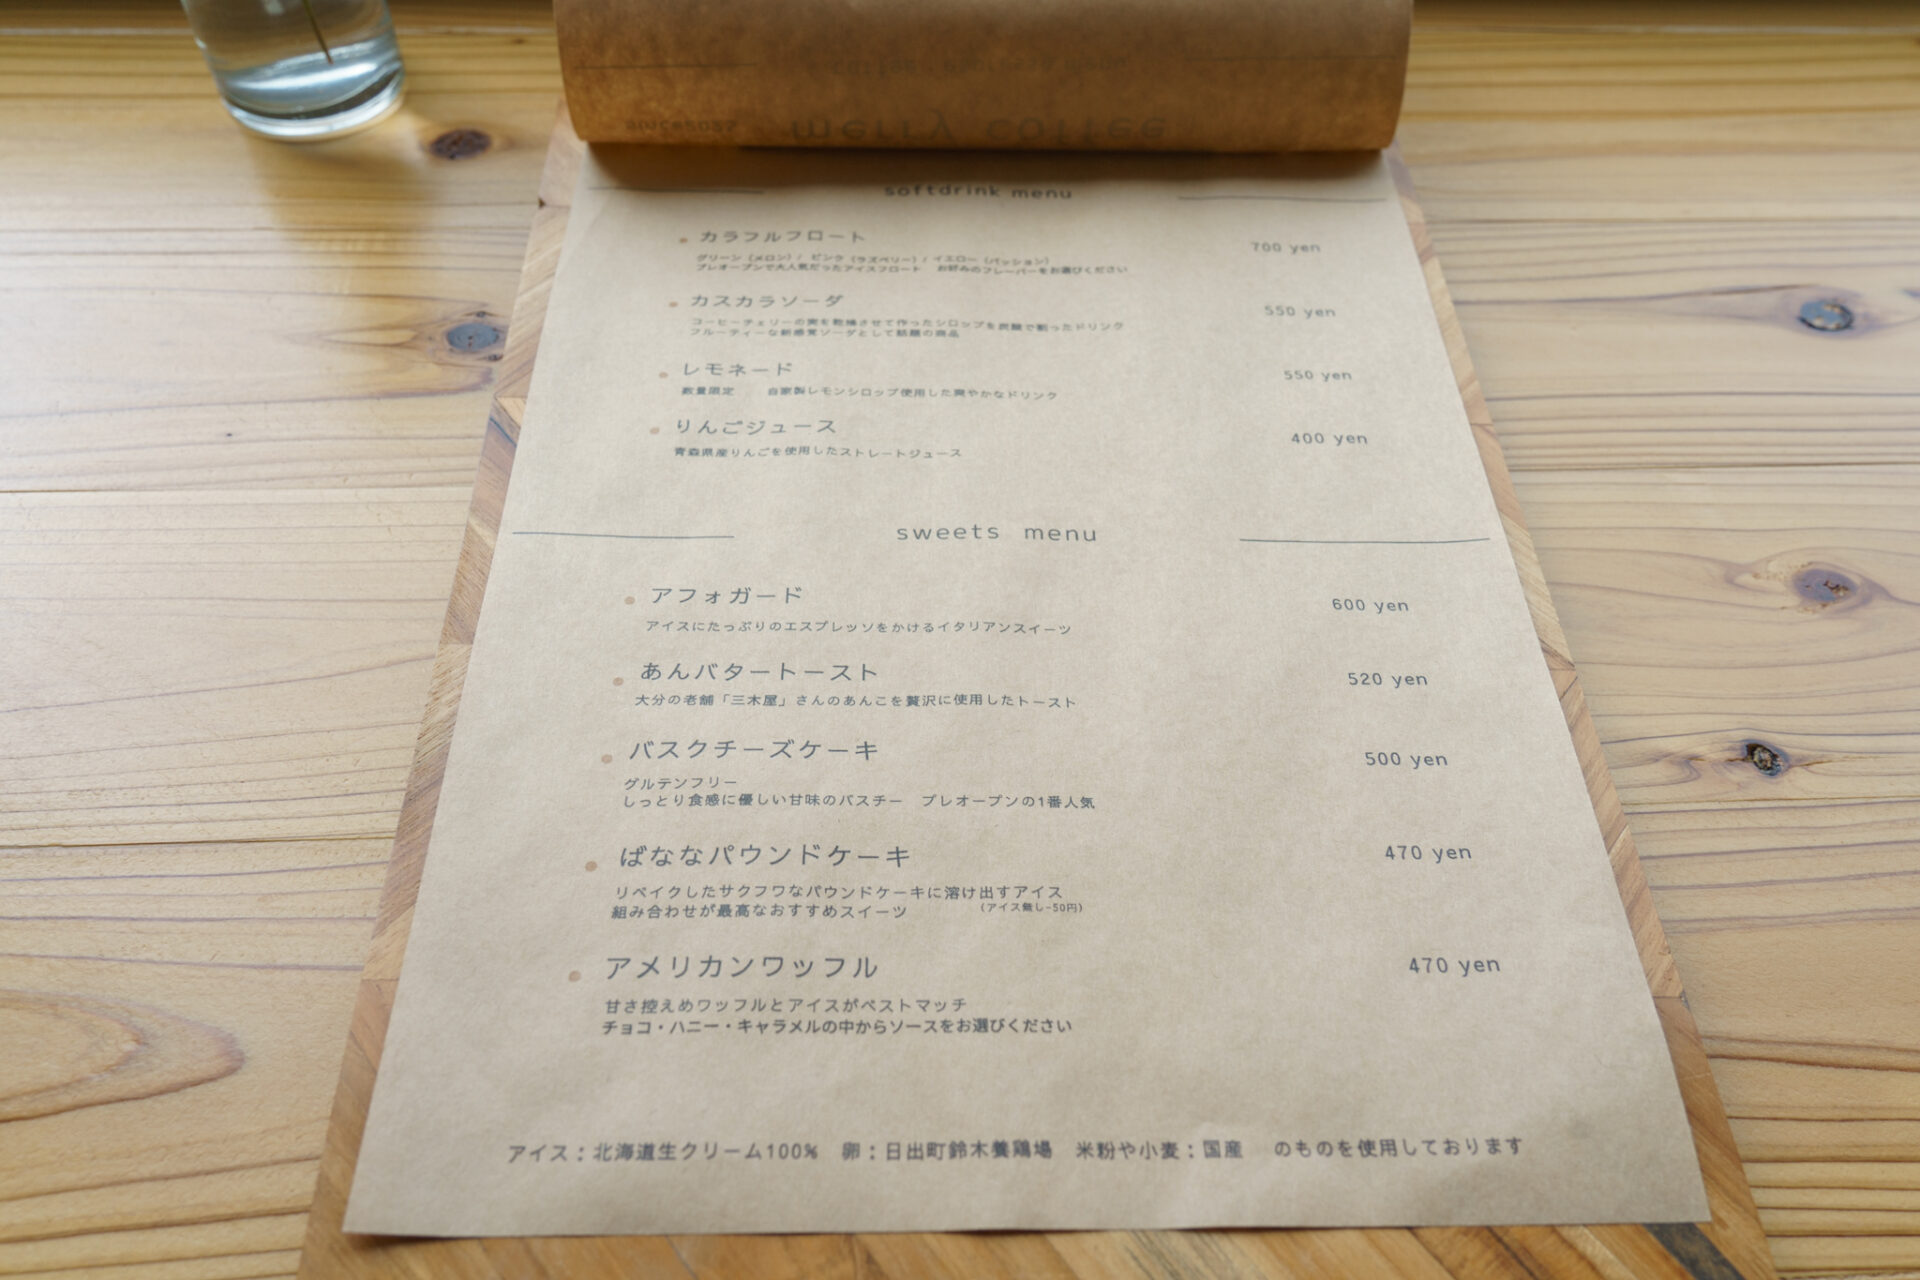 merry coffee
softdrink menu
カラフルフロート 700 yen
グリーン(メロン)/ ピンク(ラズベリー)/ イエロー(パッション)
プレオープンで大人気だったアイスフロート お好みのフレーバーをお選びください
カスカラソーダ 550 yen
コーヒーチェリーの実を乾燥させて作ったシロップを炭酸で割ったドリンク
フルーティーな新感覚ソーダとして話題の商品
レモネード 550 yen
数量限定 自家製レモンシロップ使用した爽やかなドリンク
りんごジュース 400 yen
青森県産りんごを使用したストレートジュース
sweets menu
アフォガード 600 yen
アイスにたっぷりのエスプレッソをかけるイタリアンスイーツ
あんバタートースト 520 yen
大分の老舗「三木屋」さんのあんこを贅沢に使用したトースト
バスクチーズケーキ 500 yen
グルテンフリー
しっとり食感に優しい甘味のバスチー プレオープンの1番人気
ばななパウンドケーキ 470 yen
リベイクしたサクフワなパウンドケーキに溶け出すアイス
組み合わせが最高なおすすめスイーツ (アイス無し-50円)
アメリカンワッフル 470 yen
甘さ控えめワッフルとアイスがベストマッチ
チョコ・ハニー・キャラメルの中からソースをお選びください
アイス:北海道生クリーム100% 卵:日出町鈴木養鶏場 米粉や小麦:国産 のものを使用しております